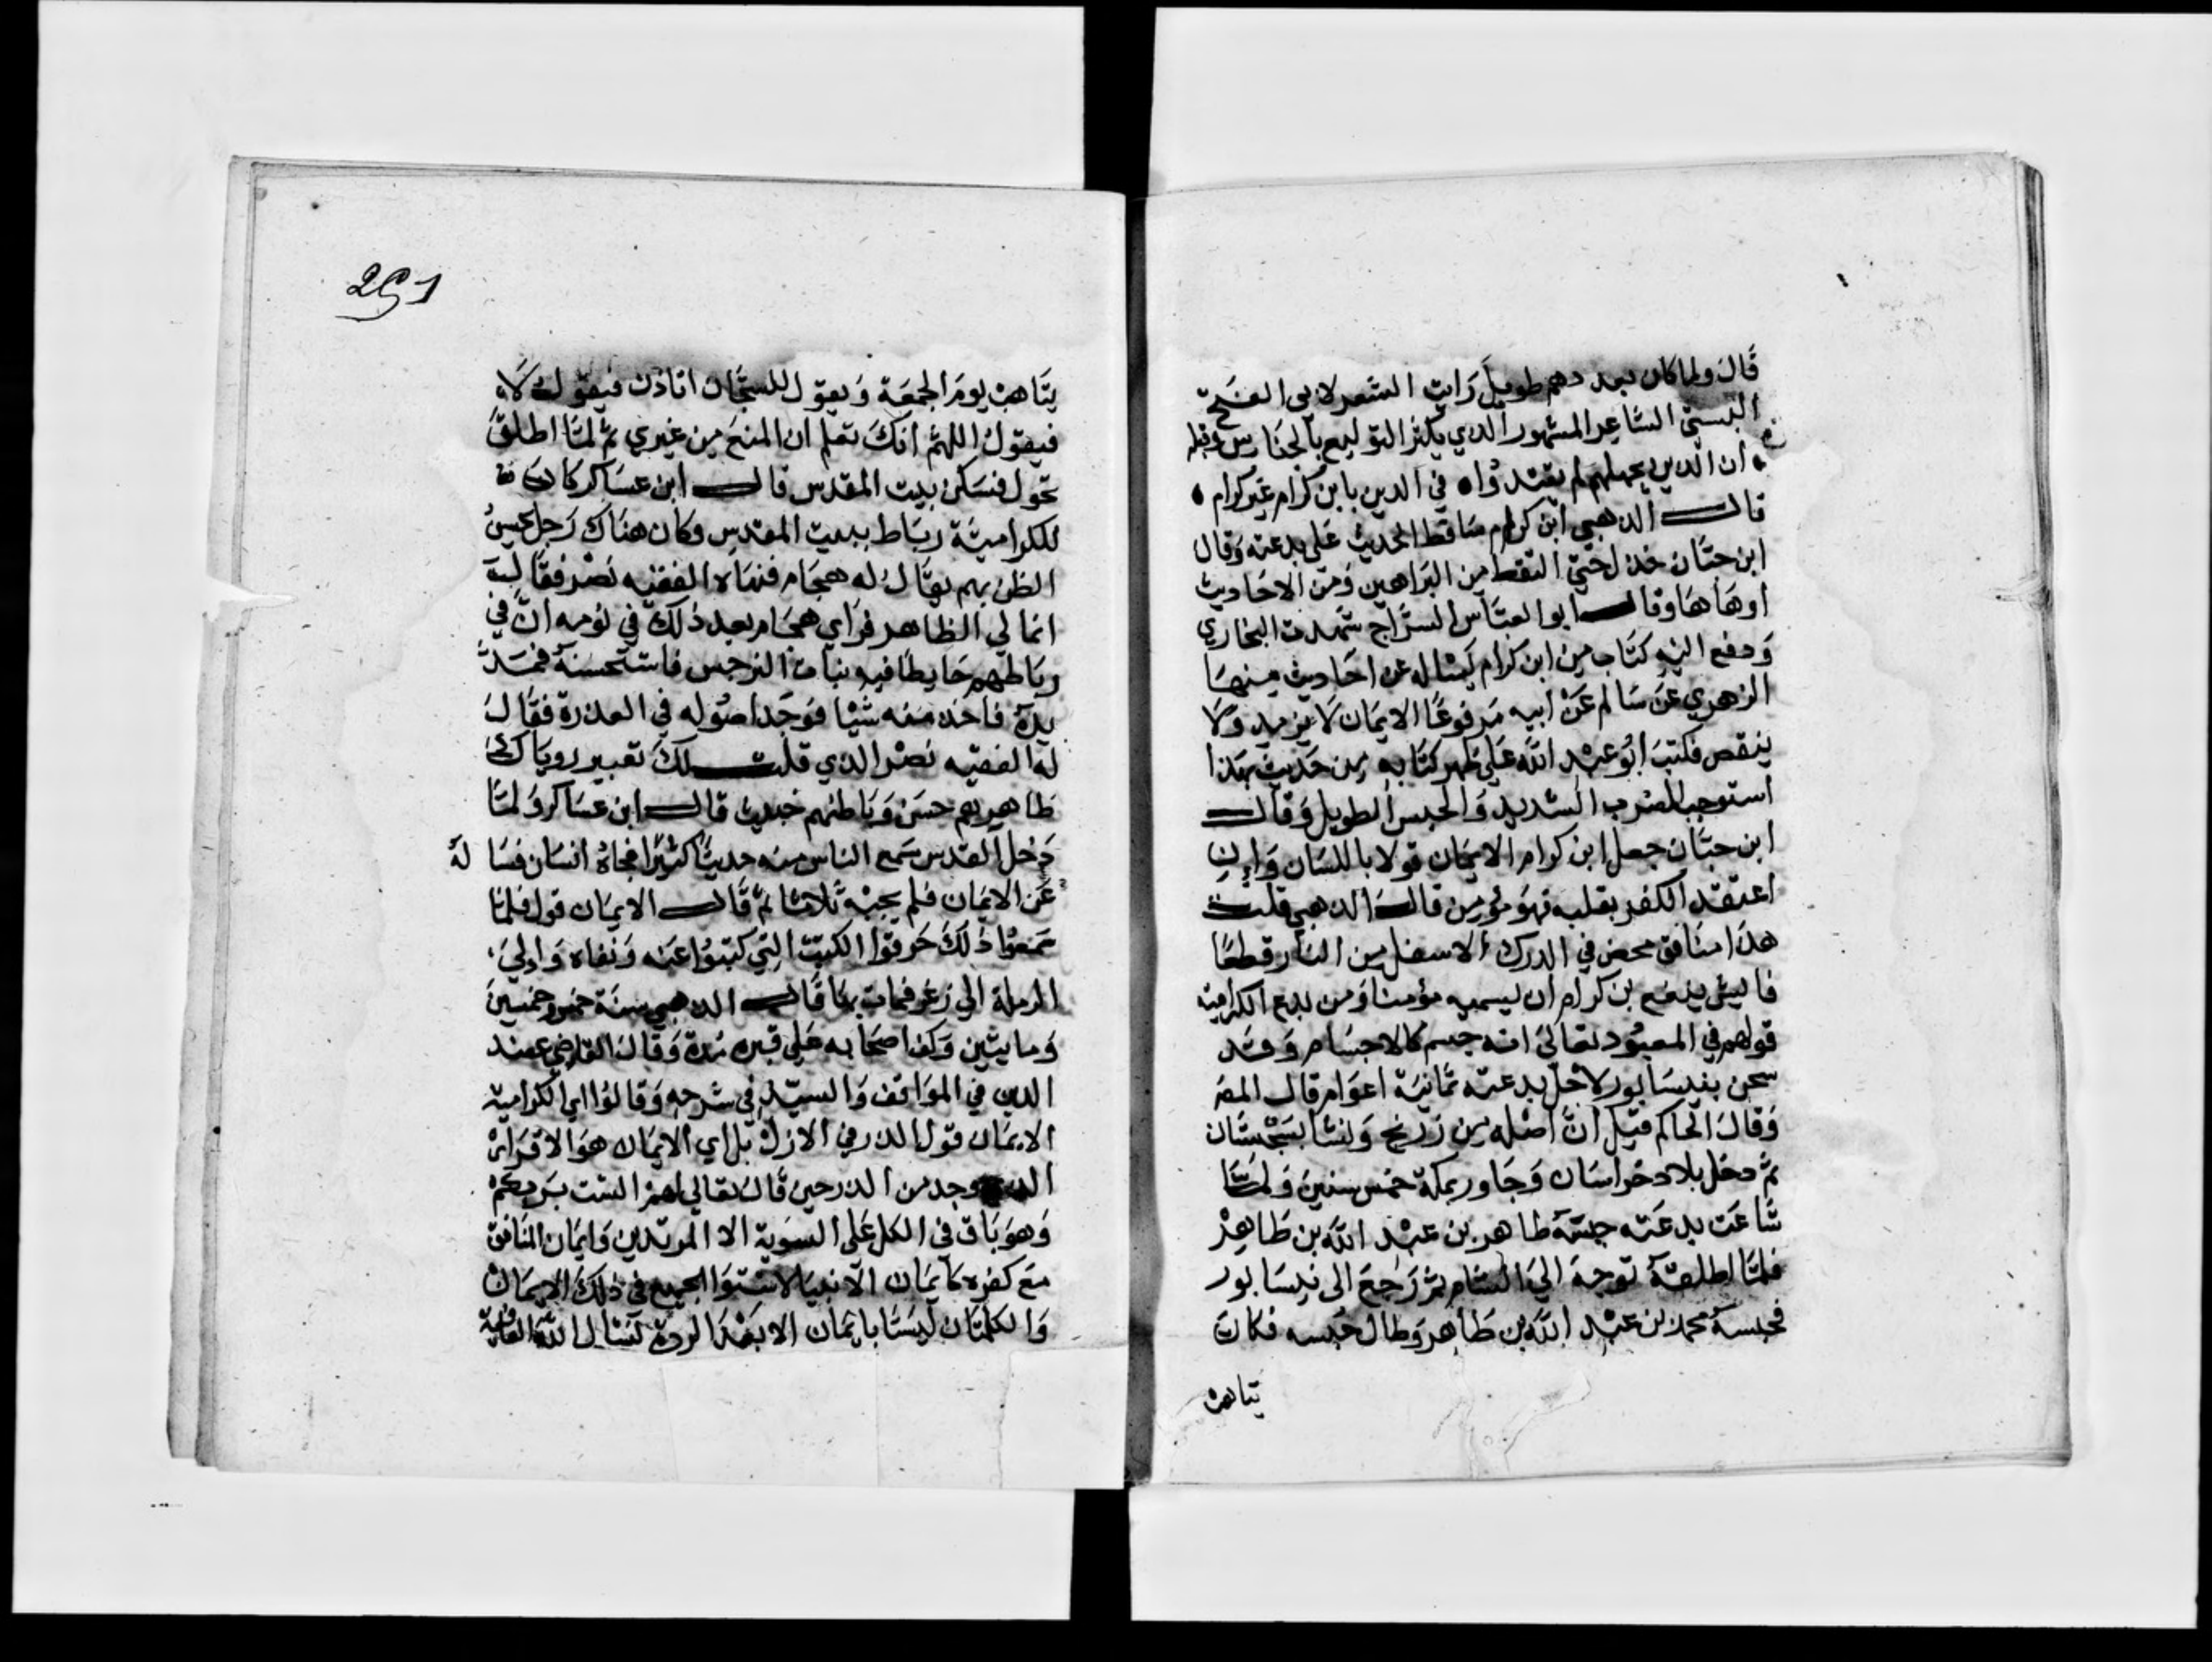 قال ولما كان بعد دهر طويل رايت الشعر لابي الفتح
البستي الشاعر المشهور الذي يكثر التوليع بالجناس وقبله
ان الذين بجهلهم لم يقتدوا في الدين بابن كرام غير كرام
قال الذهبي ابن كرام ساقط الحديث على بدعته وقال
ابن حبان خذل حتى التقط من البراهين ومن الاحاديث
اوهاها وقال ابو العباس السراج شهدت البخاري
ودفع اليه كتاب من ابن كرام يساله عن احاديث منها
الزهري عن سالم عن ابيه مرفوعا الايمان لا يزيد ولا
ينقص فكتب ابو عبد الله على ظهر كتابه من حديث بهذا
استوجب الضرب الشديد والحبس الطويل وقال
ابن حبان جعل ابن كرام الايمان قولا باللسان وان
اعتقد الكفر بقلبه فهو مؤمن قال الذهبي قلت
هذا منافق محض في الدرك الاسفل من النار قطعا
فاليش ينفع بن كرام ان يسميه مؤمنا ومن بدع الكرامية
قولهم في المعبود تعالى انه جسم كالاجسام وقد
سجن بنيسابور لاجل بدعته ثمانية اعوام قال المص
وقال الحاكم قيل ان اصله من زرنج ونشا بسجستان
ثم دخل بلاد خراسان وجاور بمكة خمس سنين ولما
شاعت بدعته حبسه طاهر بن عبد الله بن طاهر
فلما اطلقه توجه الى الشام ثم رجع الى نيسابور
فحبسه محمد بن عبد الله بن طاهر وطال حبسه فكان
يتاهب
291
يتاهب يوم الجمعة ويقول للسجان اتاذن فيقول لا
فيقول اللهم انك تعلم ان المنع من غيري ثم لما اطلق
تحول فسكن بيت المقدس قال ابن عساكر كان
للكرامية رباط ببيت المقدس وكان هناك رجل يحسن
الظن بهم يقال له هجام فنهاه الفقيه نصر فقال
انما لي الظاهر فراي هجام بعد ذلك في نومه ان في
رباطهم حايطا فيه نبات النرجس فاستحسنه فمد
يده فاخذ منه شيا فوجد اصوله في العذرة فقال
له الفقيه نصر الذي قلت لك تعبير روياك
ظاهرهم حسن وباطنهم خبيث قال ابن عساكر ولما
دخل القدس سمع الناس منه حديثا كثيرا فجاه انسان فسا له
عن الايمان فلم يجبه ثلاثا ثم قال الايمان قول فلما
سمعوا ذلك حرقوا الكتب التي كتبوا عنه ونفاه والي
الرملة الى زغر فمات بها قال الذهبي سنة خمس وخمسين
ومايتين وعكف اصحابه على قبره مدة وقال القاضي عضد
الدين في المواقف والسيد في شرحه وقالوا اي الكرامية
الايمان قول الذر في الازل بلى اي الايمان هو الاقرار
الذي وجد من الذر حين قال تعالى لهم الست بربكم
وهو باق في الكل على السوية الا المرتدين وايمان المنافق
مع كفره كايمان الانبيا لاستوا الجميع في ذلك الايمان
والكلمتان ليستا بايمان الا بعد الردة نسال الله العافية